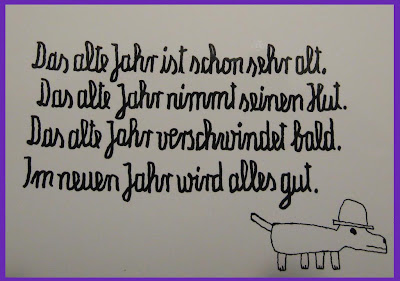 Das alte Jahr ist schon sehr alt.
Das alte Jahr nimmt seinen Hut.
Das alte Jahr verschwindet bald.
Im neuen Jahr wird alles gut.